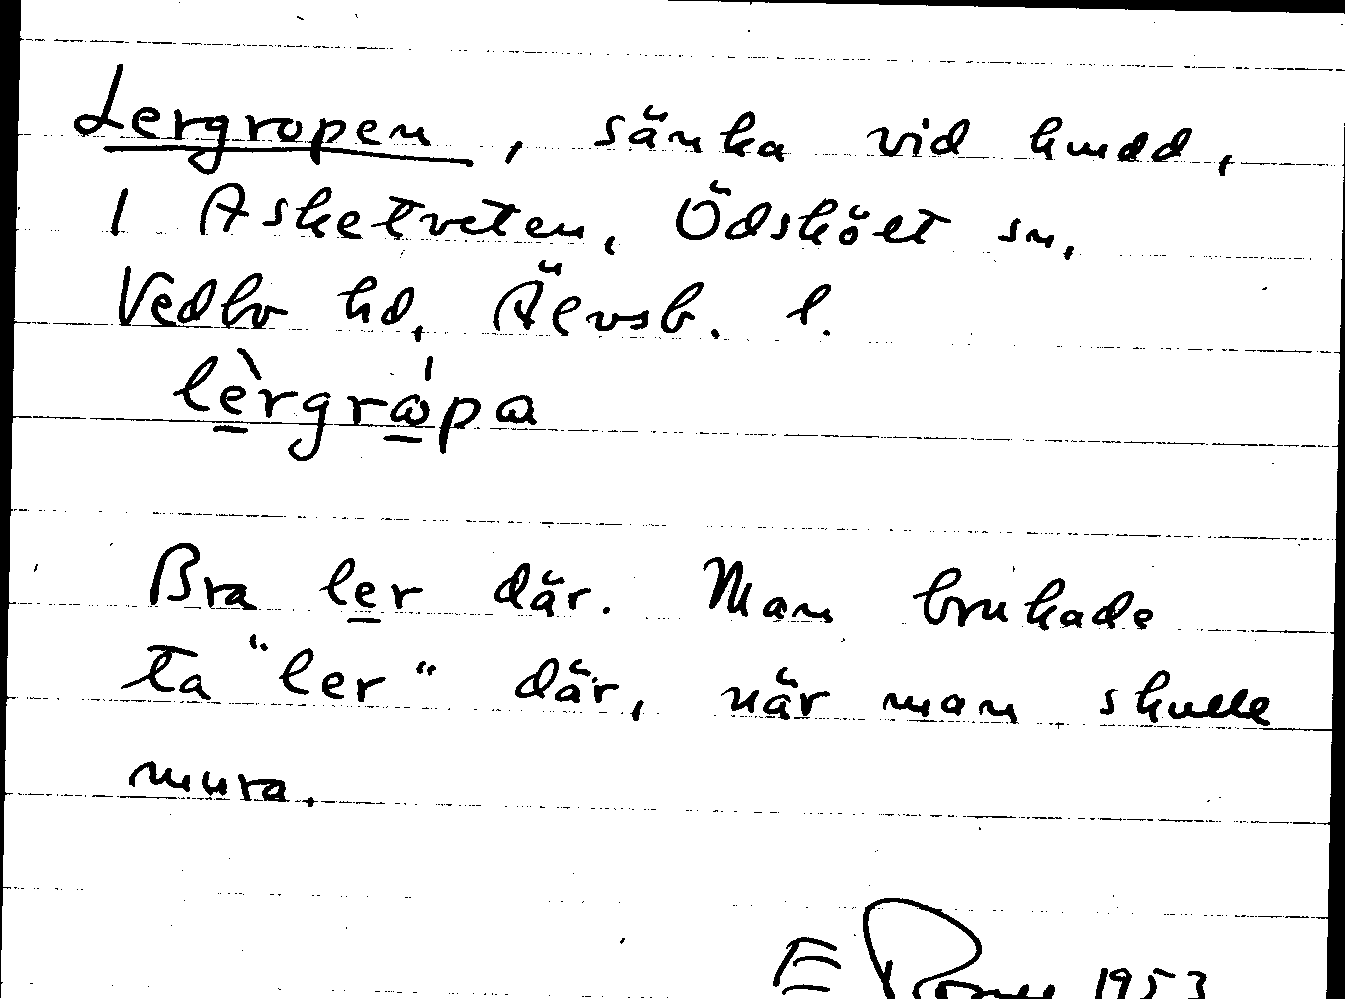 Lergropen, sänka vid hmdd,
1 Asketveten, Ödsköлt sn,
Vedbo hd, Älvsb. l.
lèrgrápa
Bra ler där. Man brukade
ta "ler" där, när man skulle
mura.
E 1953